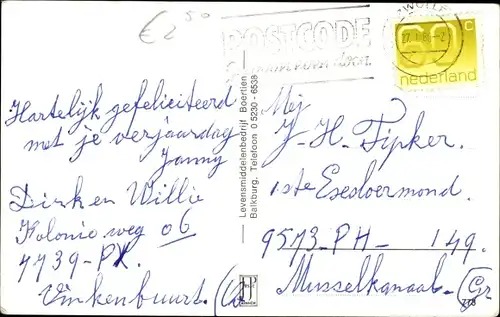 € 2 50
POSTCODE
ZWOLLE
60 c
nederland
Hartelijk gefeliciteerd
met je verjaardag
Janny
Dirk en Willie
Kolonie weg 06
7739-PX.
Vinkenbuurt.
Levensmiddelenbedrijf Boertien
Balkburg, Telefoon 0 5230-6538
Mej
J-H. Tipker.
1ste Exeloermond.
9573-PH- 149.
Musselkanaal. (Gr
778